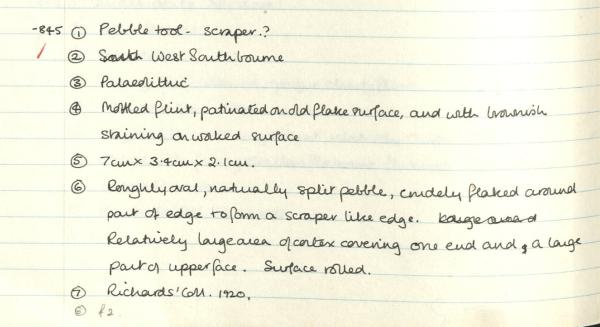 -845 ① Pebble tool - scraper.?
② South West Southbourne
③ Palaeolithic
④ Mottled flint, patinated on old flake surface, and with brownish
staining on worked surface
⑤ 7cm x 3.4cm x 2.1cm.
⑥ Roughly oval, naturally split pebble, crudely flaked around
part of edge to form a scraper like edge.
Relatively large area of cortex covering one end and, a large
part of upper face. Surface rolled.
⑦ Richards' Coll. 1920.
⑧ £2